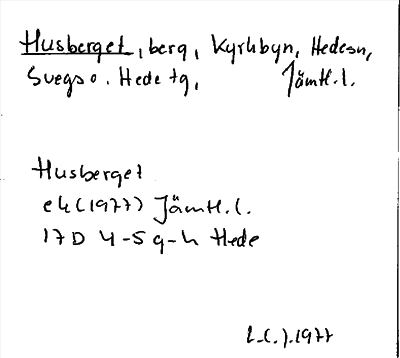 Husberget, berg, Kyrkbyn, Hedesn,
Svegs o. Hede tg, Jämtl.l.
Husberget
ek (1977) Jämtl.l.
17D 4-5 g-h Hede
1977